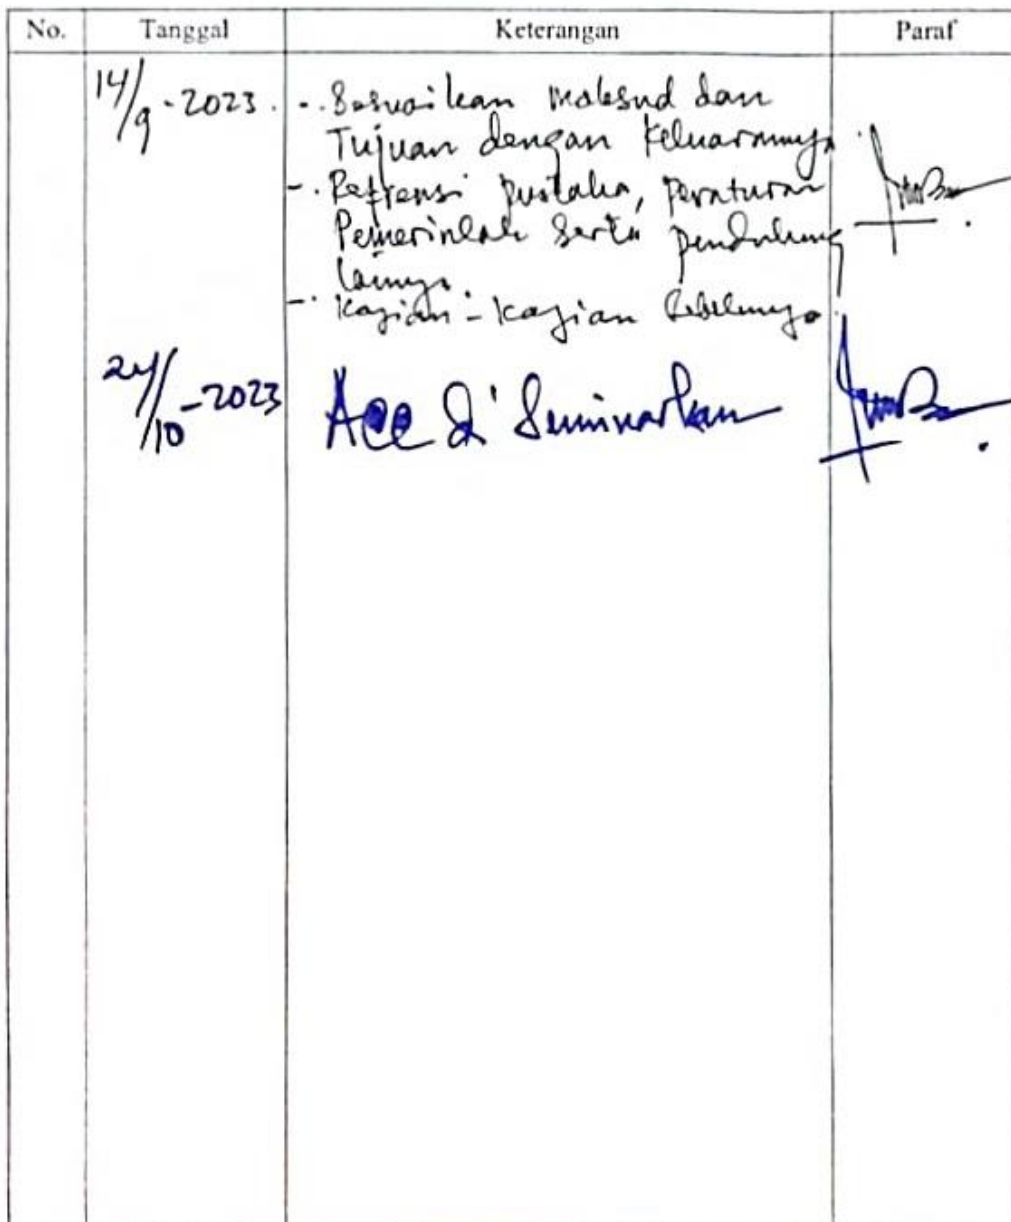 No. Tanggal Keterangan Paraf
14/9-2023. -. Sesuaikan maksud dan
Tujuan dengan Keluarannya.
-. Refrensi pustaka, peraturan
Pemerintah serta pendukung
lainnya
-. Kajian-kajian sebelumnya.
24/10-2023 Acc di Seminarkan